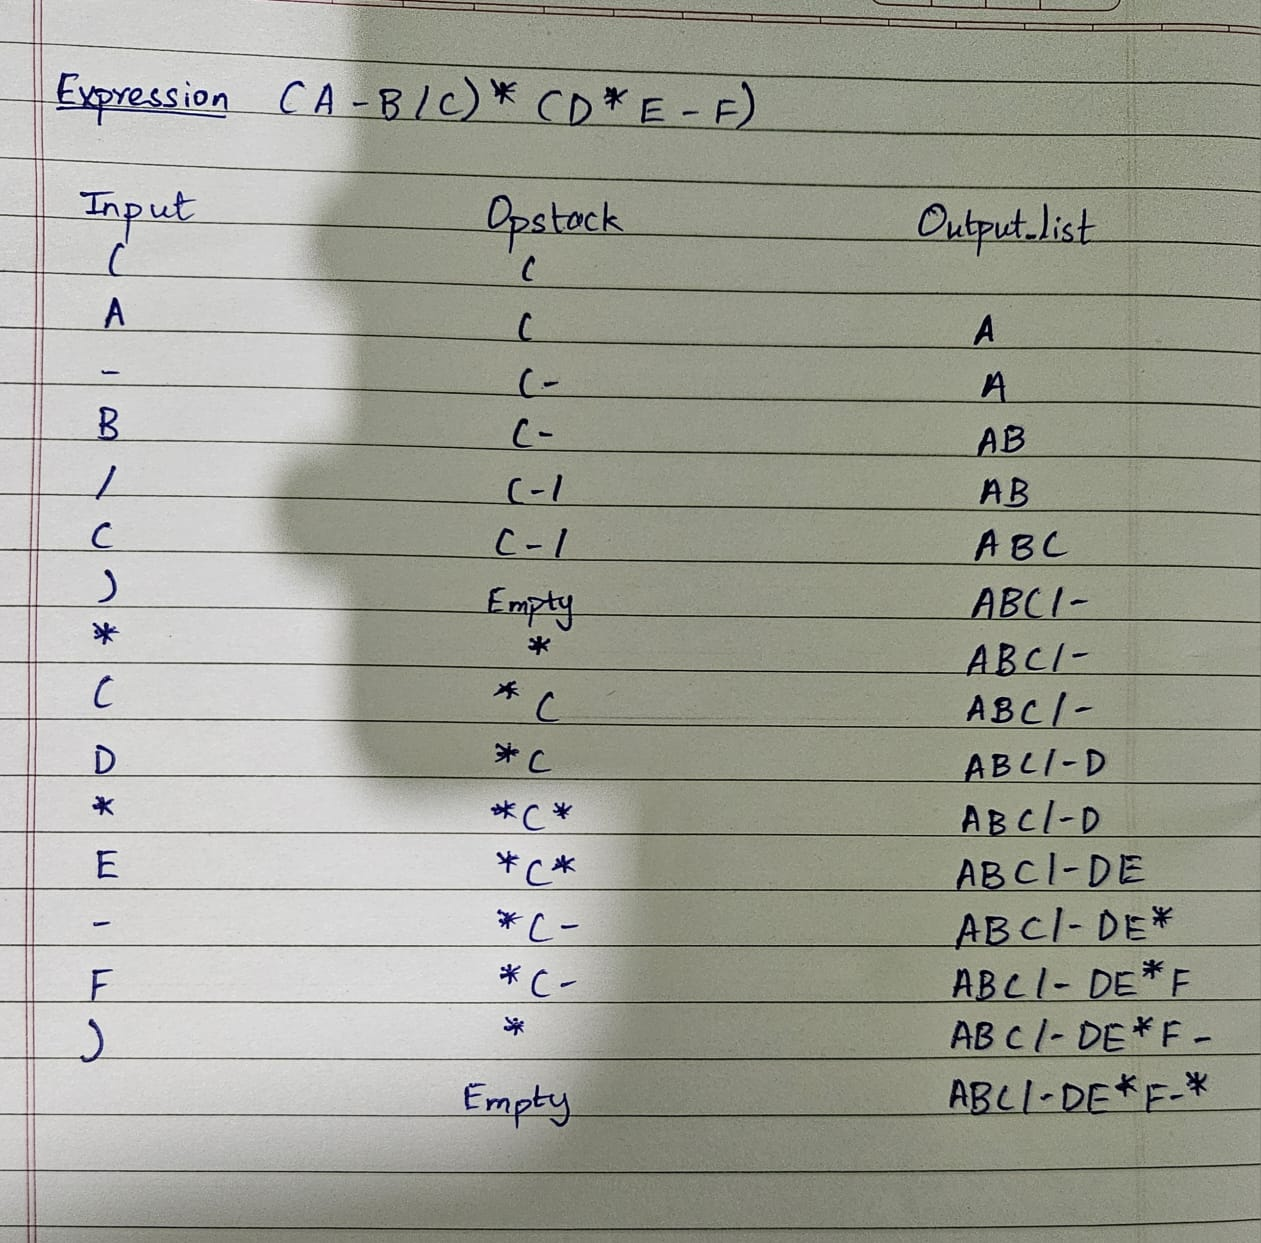 Expression (A-B/C)*(D*E-F)
Input Opstack Output_list
( (
A ( A
- (- A
B (- AB
/ (-/ AB
C (-/ ABC
) Empty ABC/-
* * ABC/-
( *( ABC/-
D *( ABC/-D
* *(* ABC/-D
E *(* ABC/-DE
- *(- ABC/-DE*
F *(- ABC/-DE*F
) * ABC/-DE*F-
Empty ABC/-DE*F-*